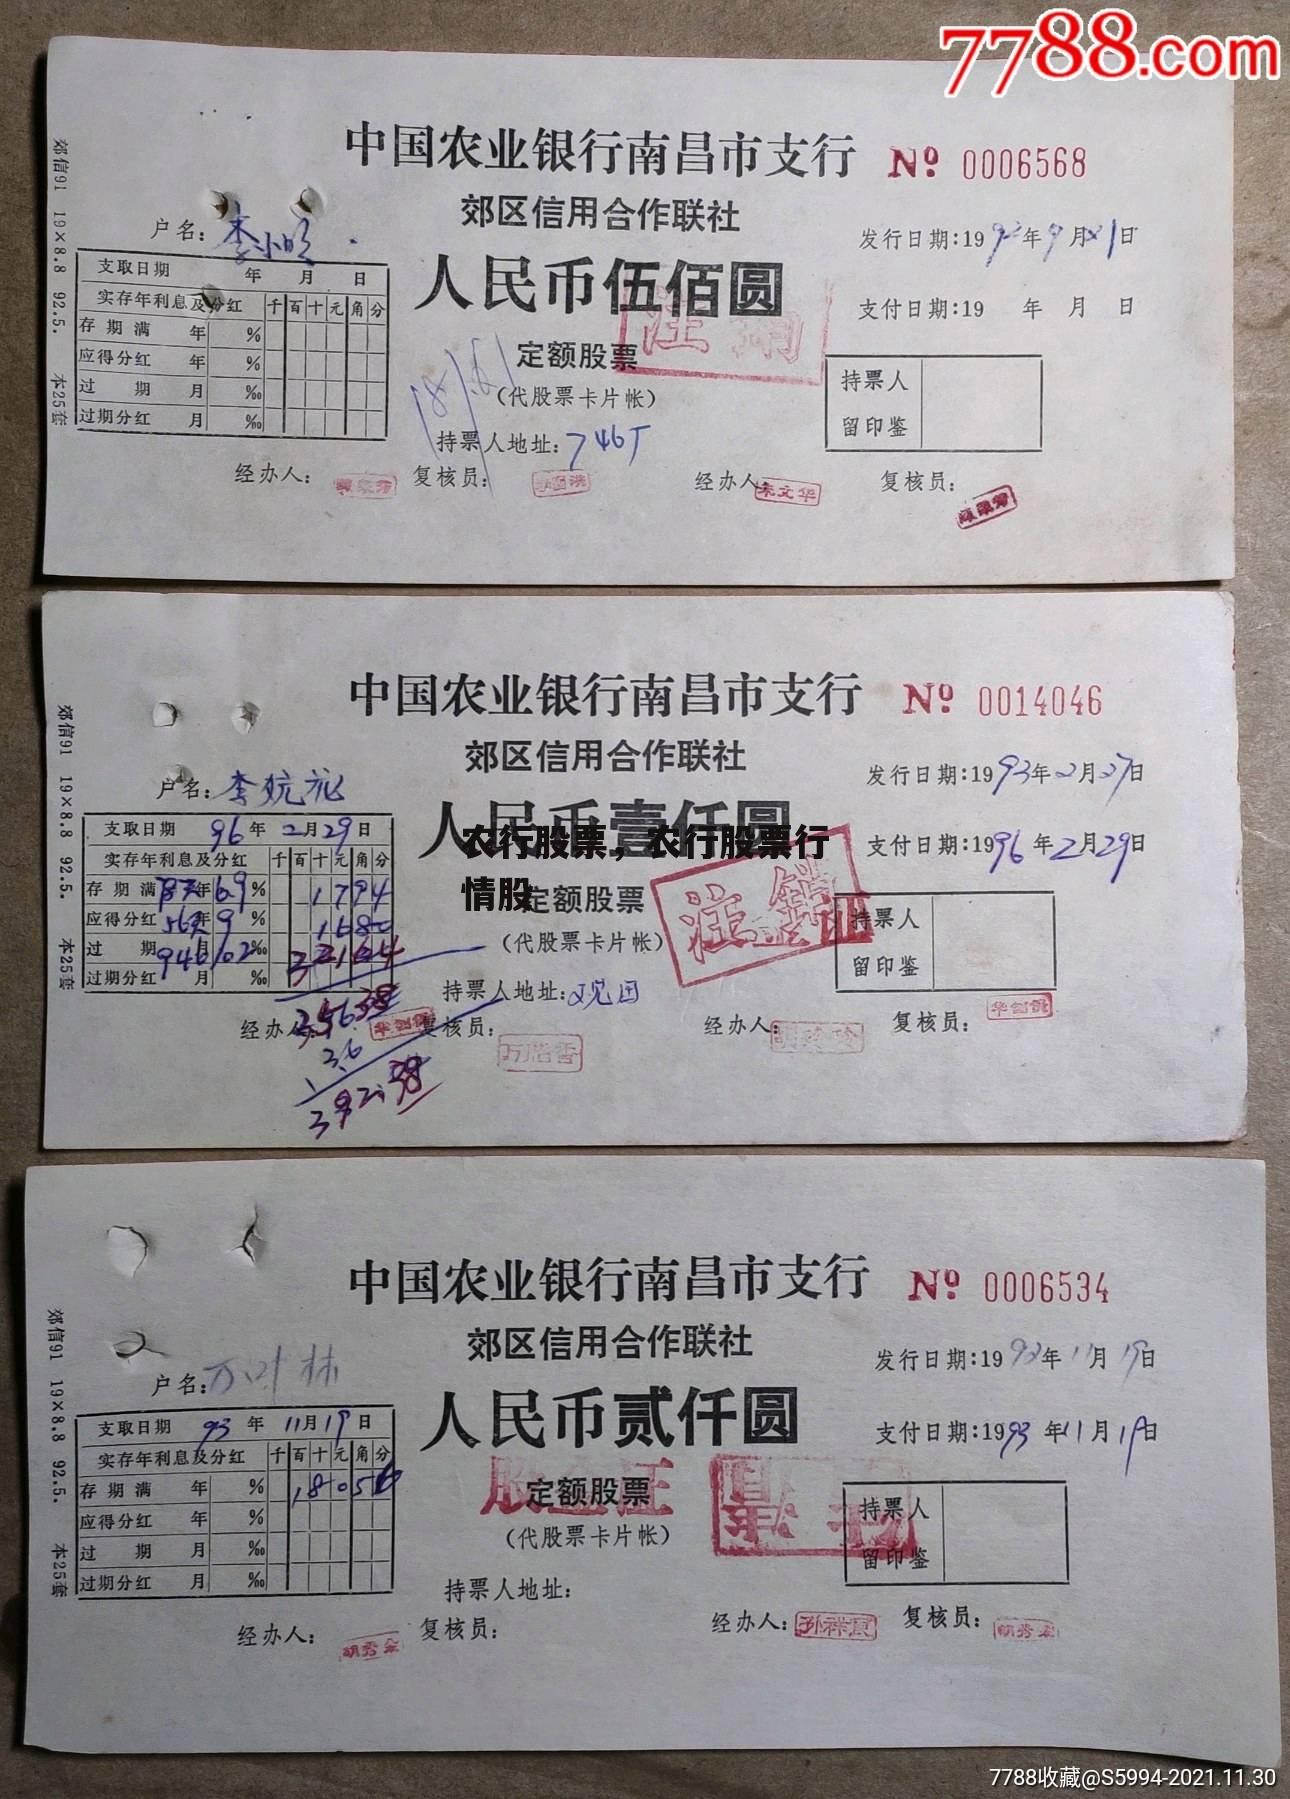 7788.com
中国农业银行南昌市支行 № 0006568
郊区信用合作联社
户名：李小明
发行日期：199 年9月21日
人民币伍佰圆
支付日期：19 年 月 日
注销
支取日期 年 月 日
实存年利息及分红 千百十元角分
存期满 年 %
应得分红 年 %
过 期 月 ‰
过期分红 月 ‰
定额股票
（代股票卡片帐）
持票人地址：746厂
持票人
留印鉴
经办人： 复核员： 经办人 朱文华 复核员：
郊信91 19×8.8 92.5. 本25套
中国农业银行南昌市支行 № 0014046
郊区信用合作联社
户名：李
发行日期：1993年2月27日
人民币壹仟圆
支付日期：1996年2月29日
农行股票，农行股票行
情股
注销
支取日期 96年2月29日
实存年利息及分红 千百十元角分
存期满 年6.9% 1794
应得分红 年9% 1680
过 期 月 ‰
过期分红 月 ‰
392.38
定额股票
（代股票卡片帐）
持票人地址：
持票人
留印鉴
经办人 复核员： 经办人 复核员：
郊信91 19×8.8 92.5. 本25套
中国农业银行南昌市支行 № 0006534
郊区信用合作联社
户名：万 林
发行日期：1993年11月19日
人民币贰仟圆
支付日期：1993年11月19日
股金证
支取日期 93年11月19日
实存年利息及分红 千百十元角分
存期满 年 %
应得分红 年 %
过 期 月 ‰
过期分红 月 ‰
定额股票
（代股票卡片帐）
持票人地址：
持票人
留印鉴
经办人： 复核员： 经办人： 复核员：
郊信91 19×8.8 92.5. 本25套
7788收藏@S5994-2021.11.30